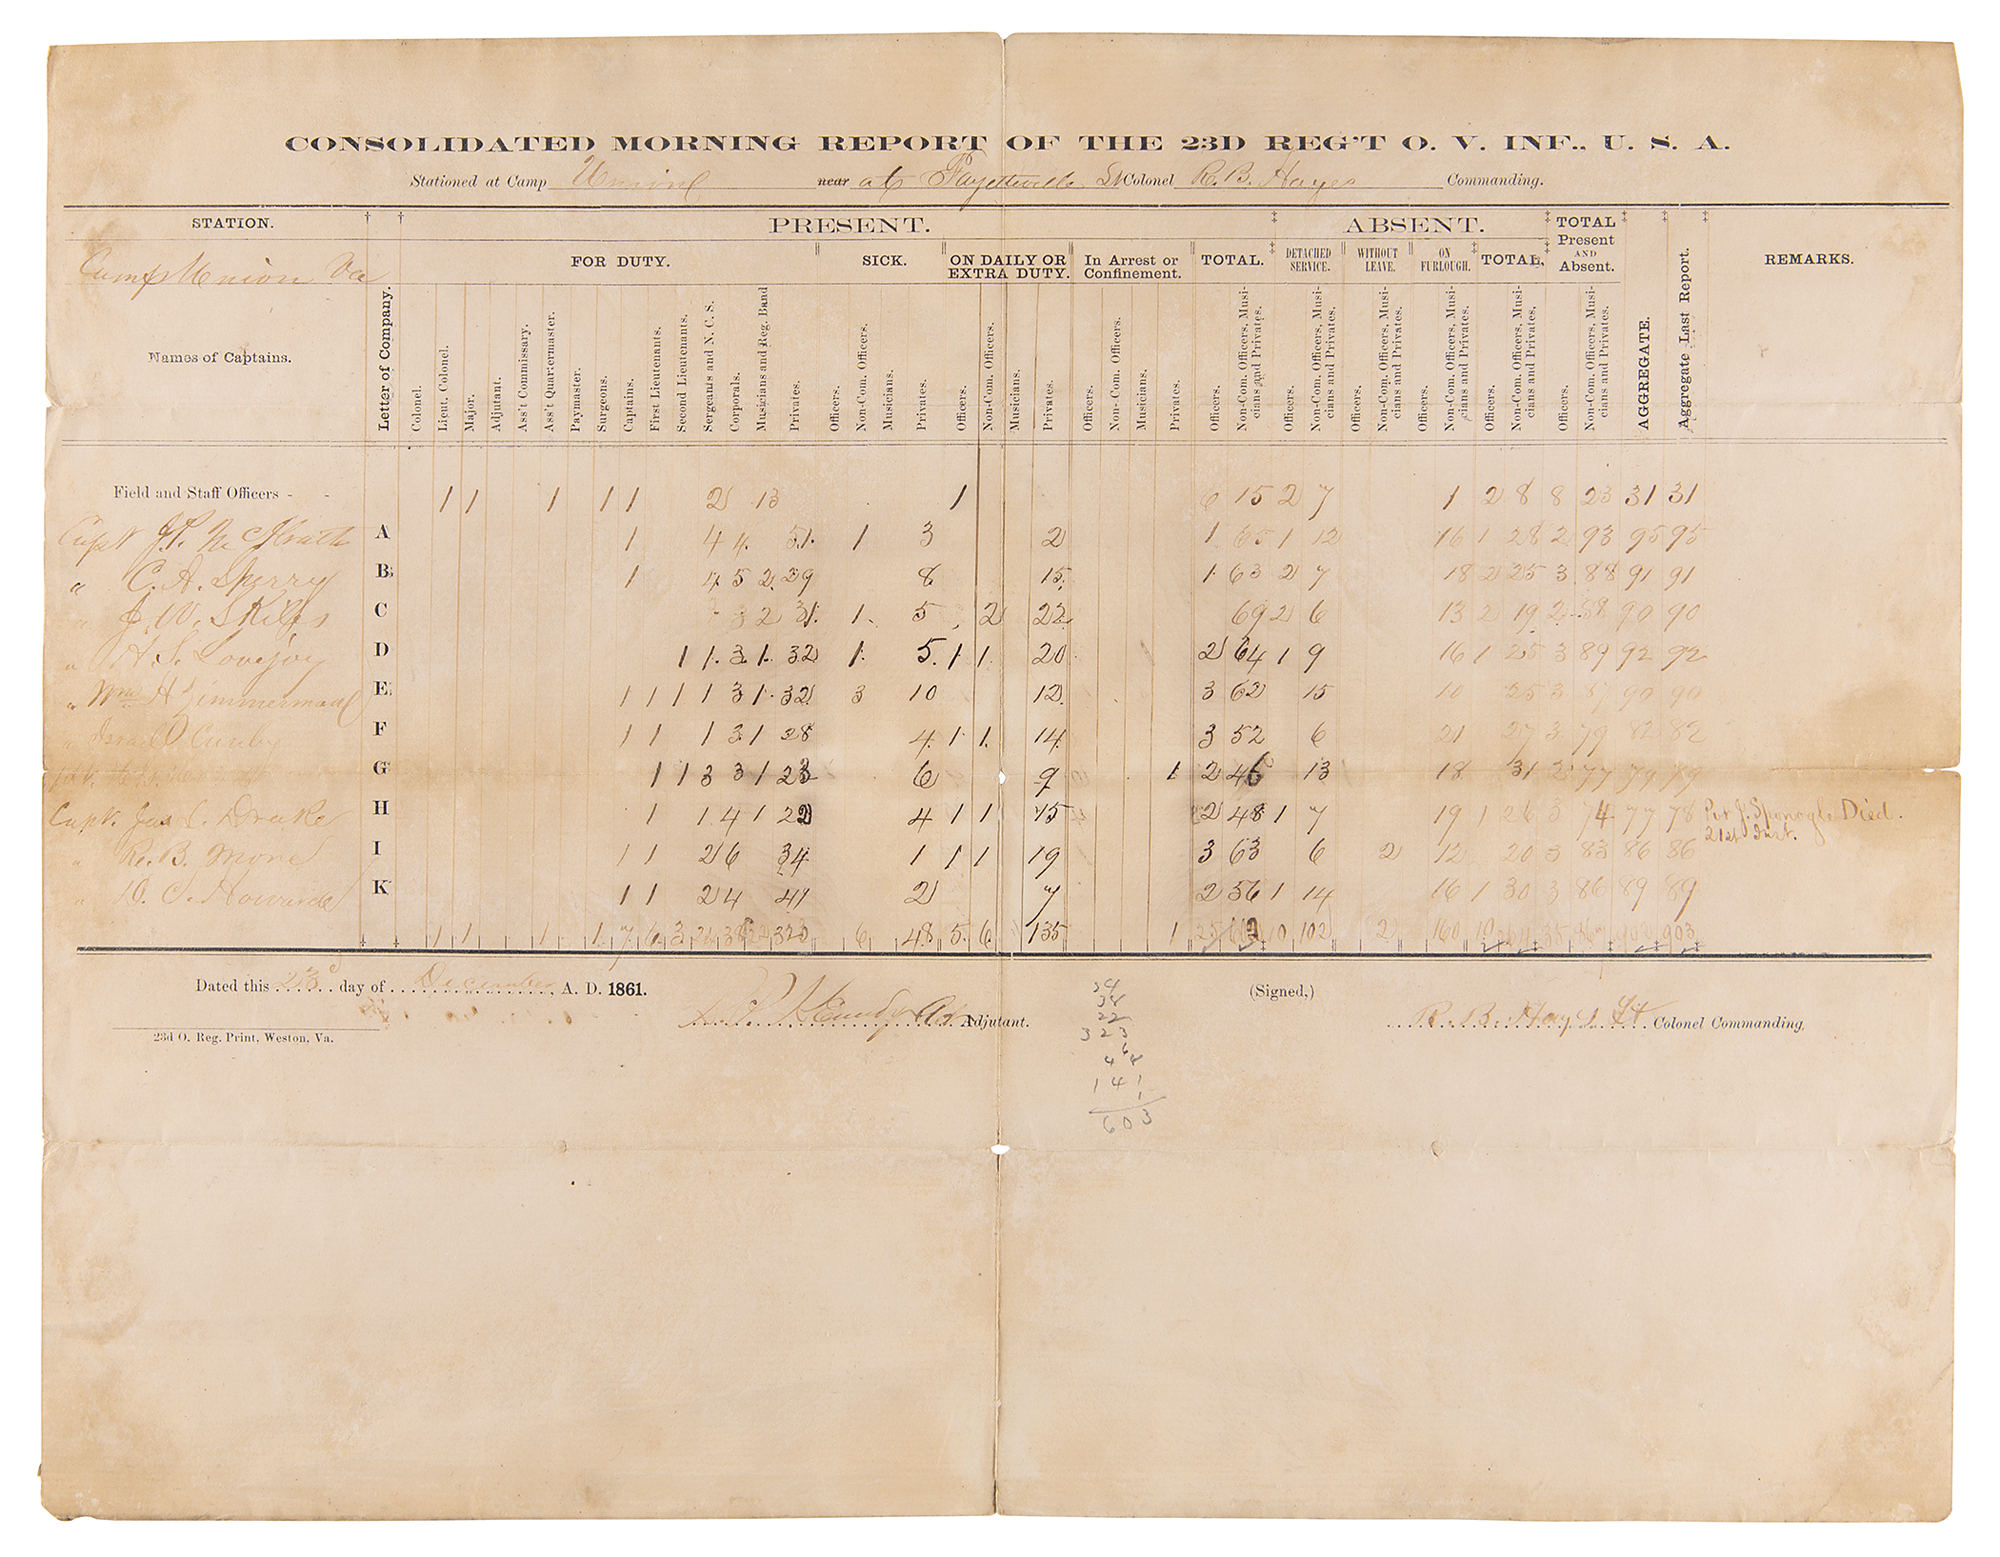 CONSOLIDATED MORNING REPORT OF THE 23D REG'T O. V. INF., U. S. A.
Stationed at Camp Union near at Fayetteville Lt Colonel R. B. Hayes Commanding.
STATION. PRESENT. ABSENT. TOTAL Present AND Absent. AGGREGATE. Aggregate Last Report. REMARKS.
Camp Union Va
FOR DUTY. SICK. ON DAILY OR EXTRA DUTY. In Arrest or Confinement. TOTAL. DETACHED SERVICE. WITHOUT LEAVE. ON FURLOUGH. TOTAL.
Names of Captains. Letter of Company. Colonel. Lieut. Colonel. Major. Adjutant. Ass't Commissary. Ass't Quartermaster. Paymaster. Surgeons. Captains. First Lieutenants. Second Lieutenants. Sergeants and N. C. S. Corporals. Musicians and Reg. Band Privates. Officers. Non-Com. Officers. Musicians. Privates. Officers. Non-Com. Officers. Musicians. Privates. Officers. Non-Com. Officers. Musicians. Privates. Officers. Non-Com. Officers, Musicians and Privates. Officers. Non-Com. Officers, Musicians and Privates. Officers. Non-Com. Officers, Musicians and Privates. Officers. Non-Com. Officers, Musicians and Privates. Officers. Non-Com. Officers, Musicians and Privates. Officers. Non-Com. Officers, Musicians and Privates.
Field and Staff Officers - - 1 1 1 1 1 2 13 1 6 15 2 7 1 2 8 8 23 31 31
Capt J. P. McIlrath A 1 4 4 51 1 3 2 1 65 1 12 16 1 28 2 93 95 95
" C. A. Sperry B 1 4 5 2 29 8 15 1 63 2 7 18 2 25 3 88 91 91
" J. W. Skiles C 3 2 31 1 5 2 22 69 2 6 13 2 19 2 88 90 90
" H. S. Lovejoy D 1 1 3 1 32 1 5 1 1 20 2 64 1 9 16 1 25 3 89 92 92
" Wm H Zimmerman E 1 1 1 1 3 1 32 3 10 12 3 62 15 10 25 3 87 90 90
" Israel Canby F 1 1 1 3 1 28 4 1 1 14 3 52 6 21 27 3 79 82 82
G 1 1 3 3 1 23 6 9 1 2 46 13 18 31 2 77 79 79
Capt. Jas L. Drake H 1 1 4 1 22 4 1 1 15 2 48 1 7 19 1 26 3 74 77 78 J. Sponogle Died.
21st Inst.
" R. B. More I 1 1 2 6 34 1 1 1 19 3 63 6 2 12 20 3 83 86 86
" D. C. Howard K 1 1 2 4 41 2 7 2 56 1 14 16 1 30 3 86 89 89
1 1 1 1 7 6 3 26 38 22 323 6 48 5 6 135 1 25 603 10 102 2 160 10 264 35 867 902 903
Dated this 23d day of December, A. D. 1861. Kennedy Adjutant. (Signed,) R. B. Hayes Lt Colonel Commanding,
23d O. Reg. Print, Weston, Va.
34
38
22
323
6
48
141
1
603